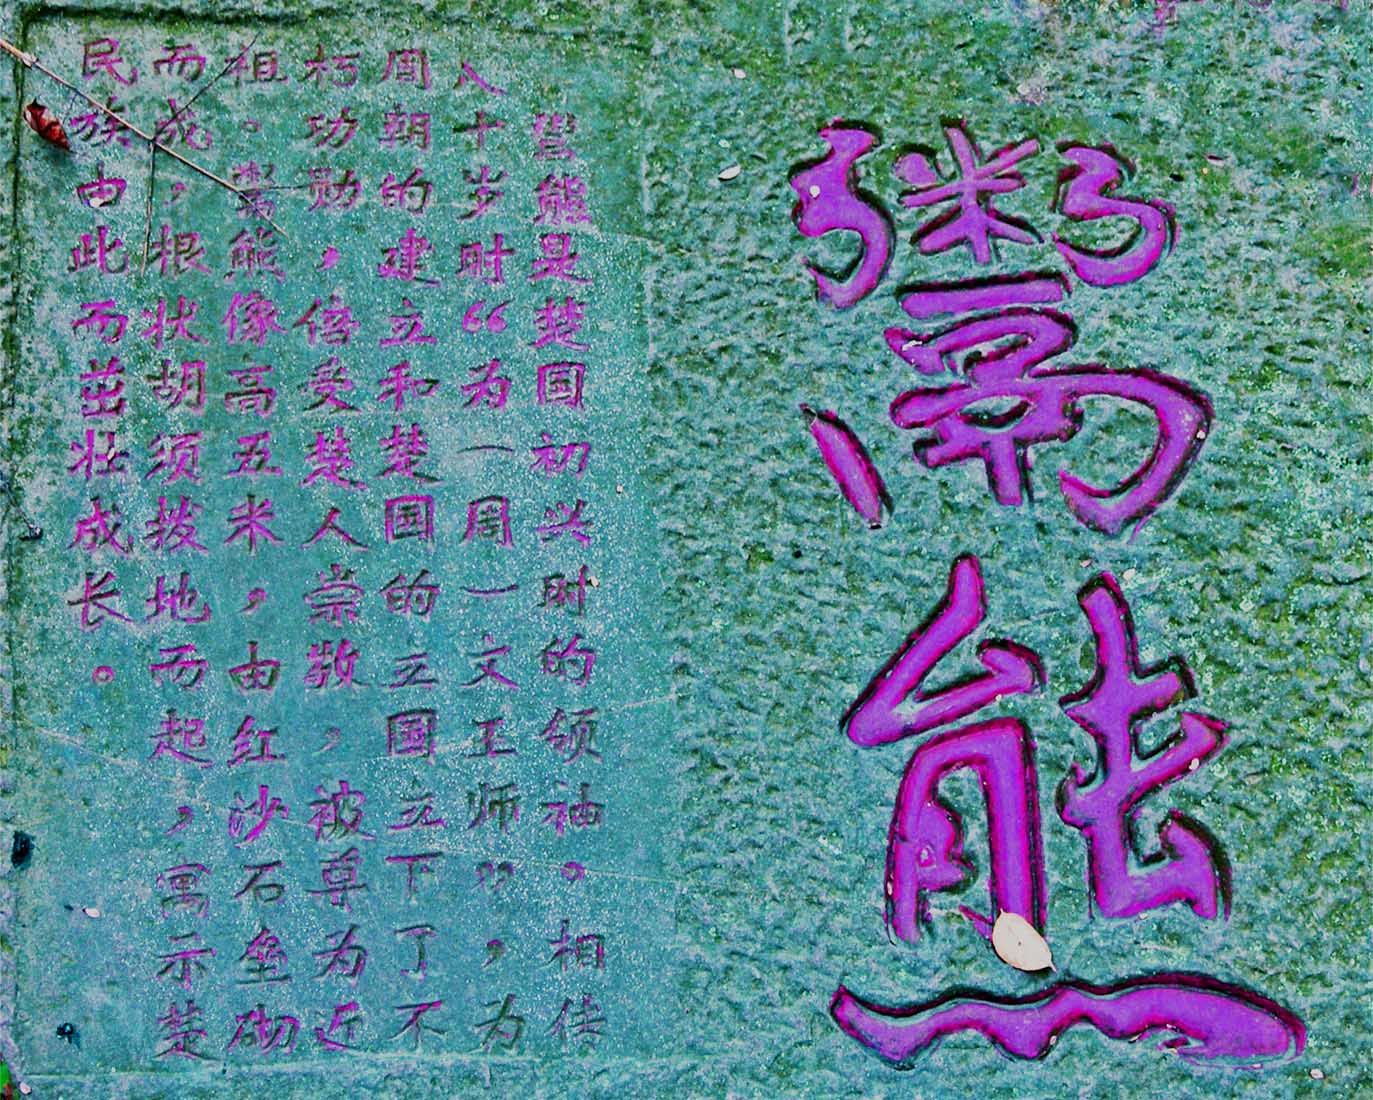 鬻熊
鬻熊是楚国初兴时的领袖。相传
八十岁时“为（周）文王师”，为
周朝的建立和楚国的立国立下了不
朽功勋，倍受楚人崇敬，被尊为近
祖。鬻熊像高五米，由红沙石垒砌
而成，根状胡须拔地而起，寓示楚
民族由此而茁壮成长。